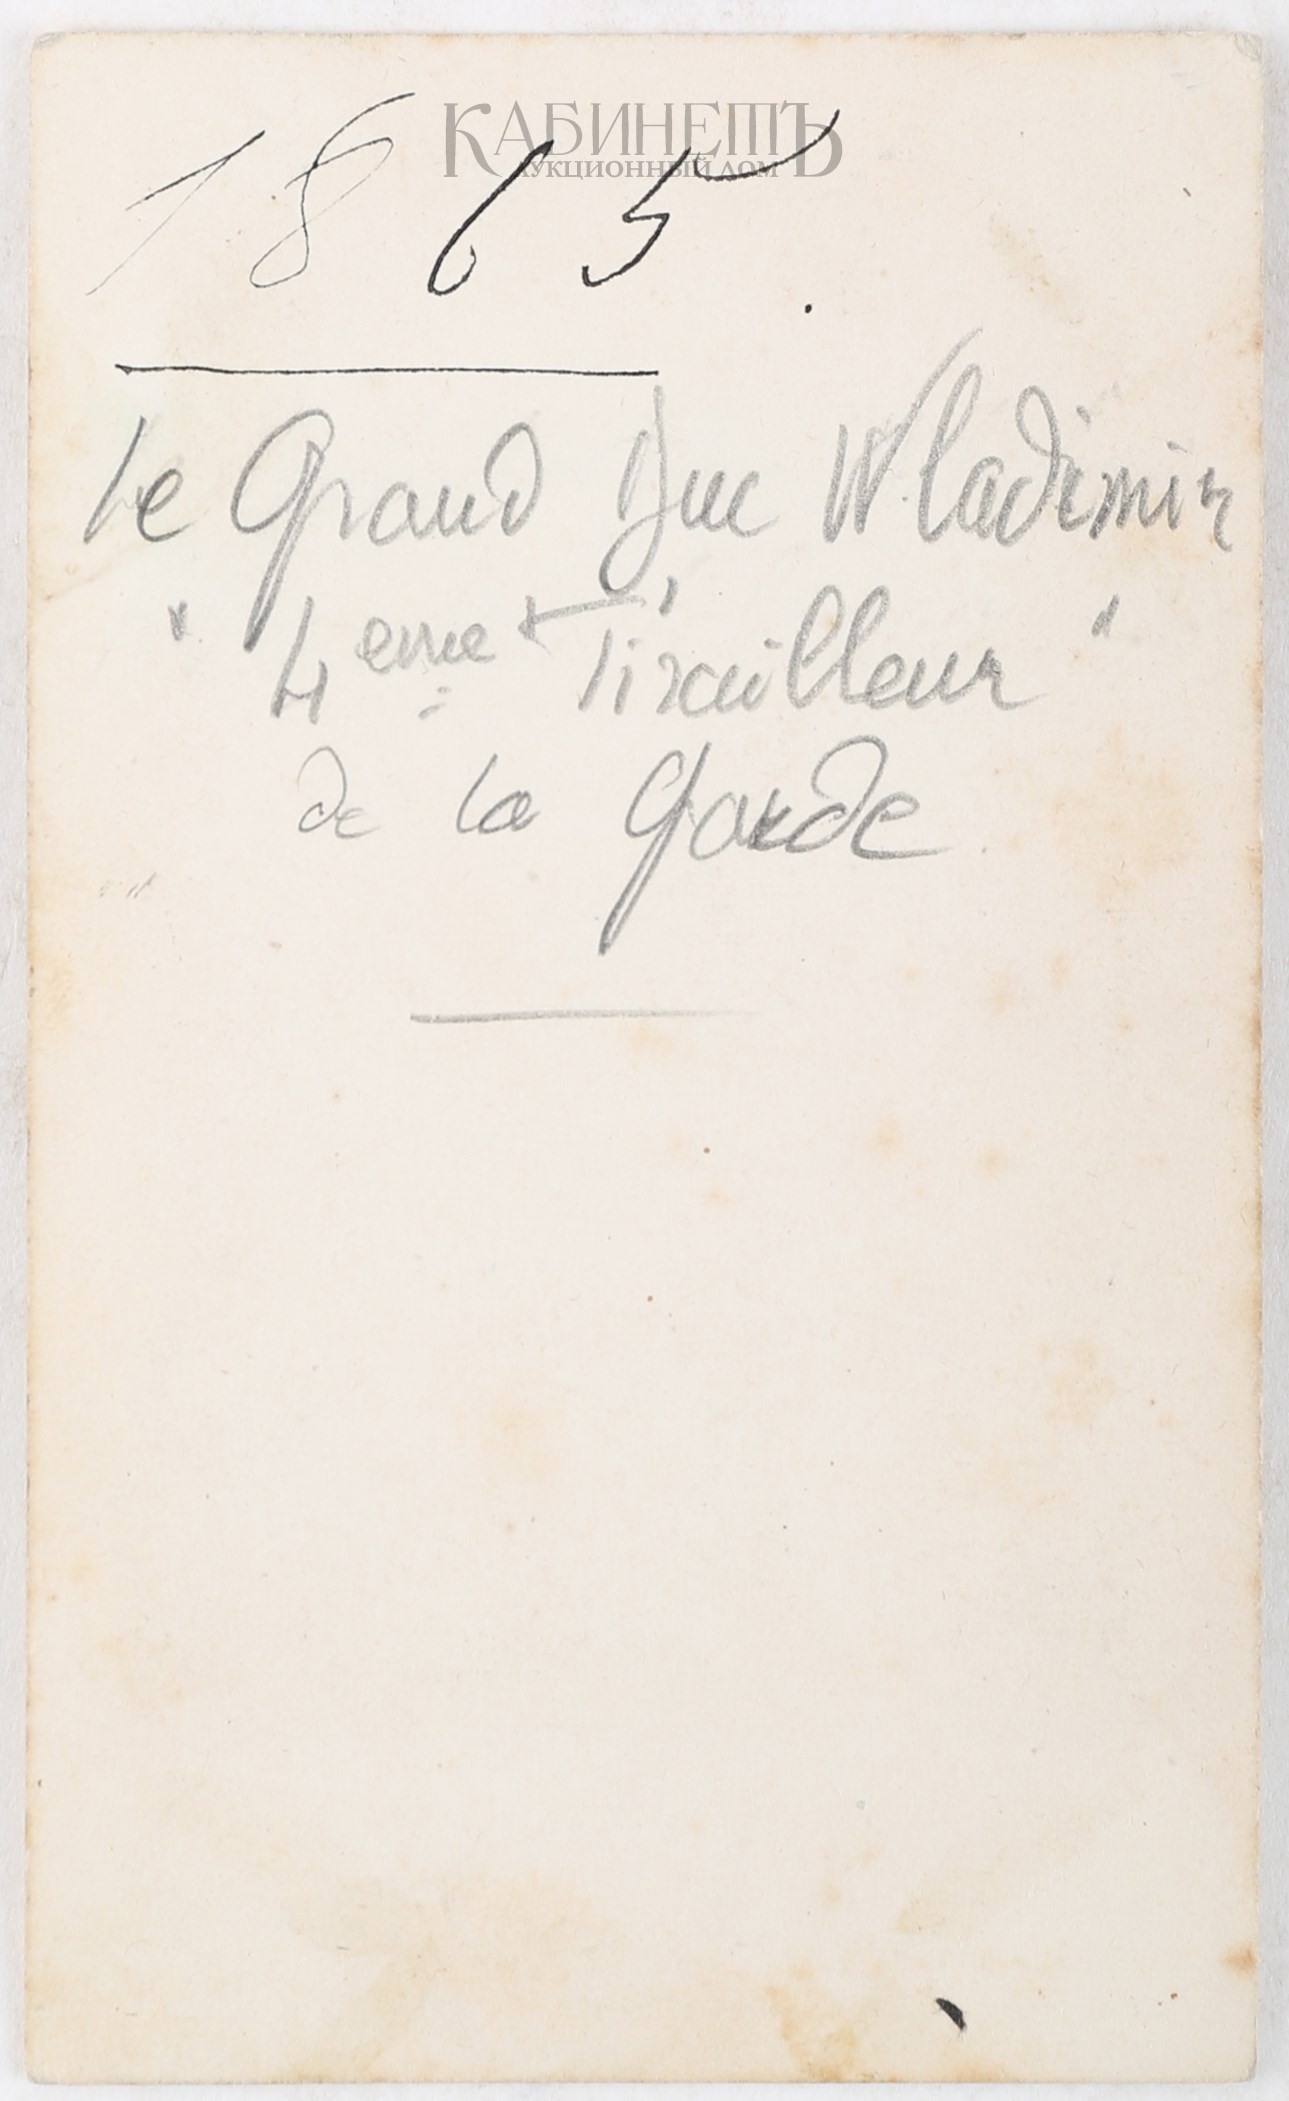 КАБИНЕТЪ
АУКЦИОННЫЙ ДОМ
1865.
Le Grand Duc Wladimir
" 4eme Tirailleur "
de la Garde